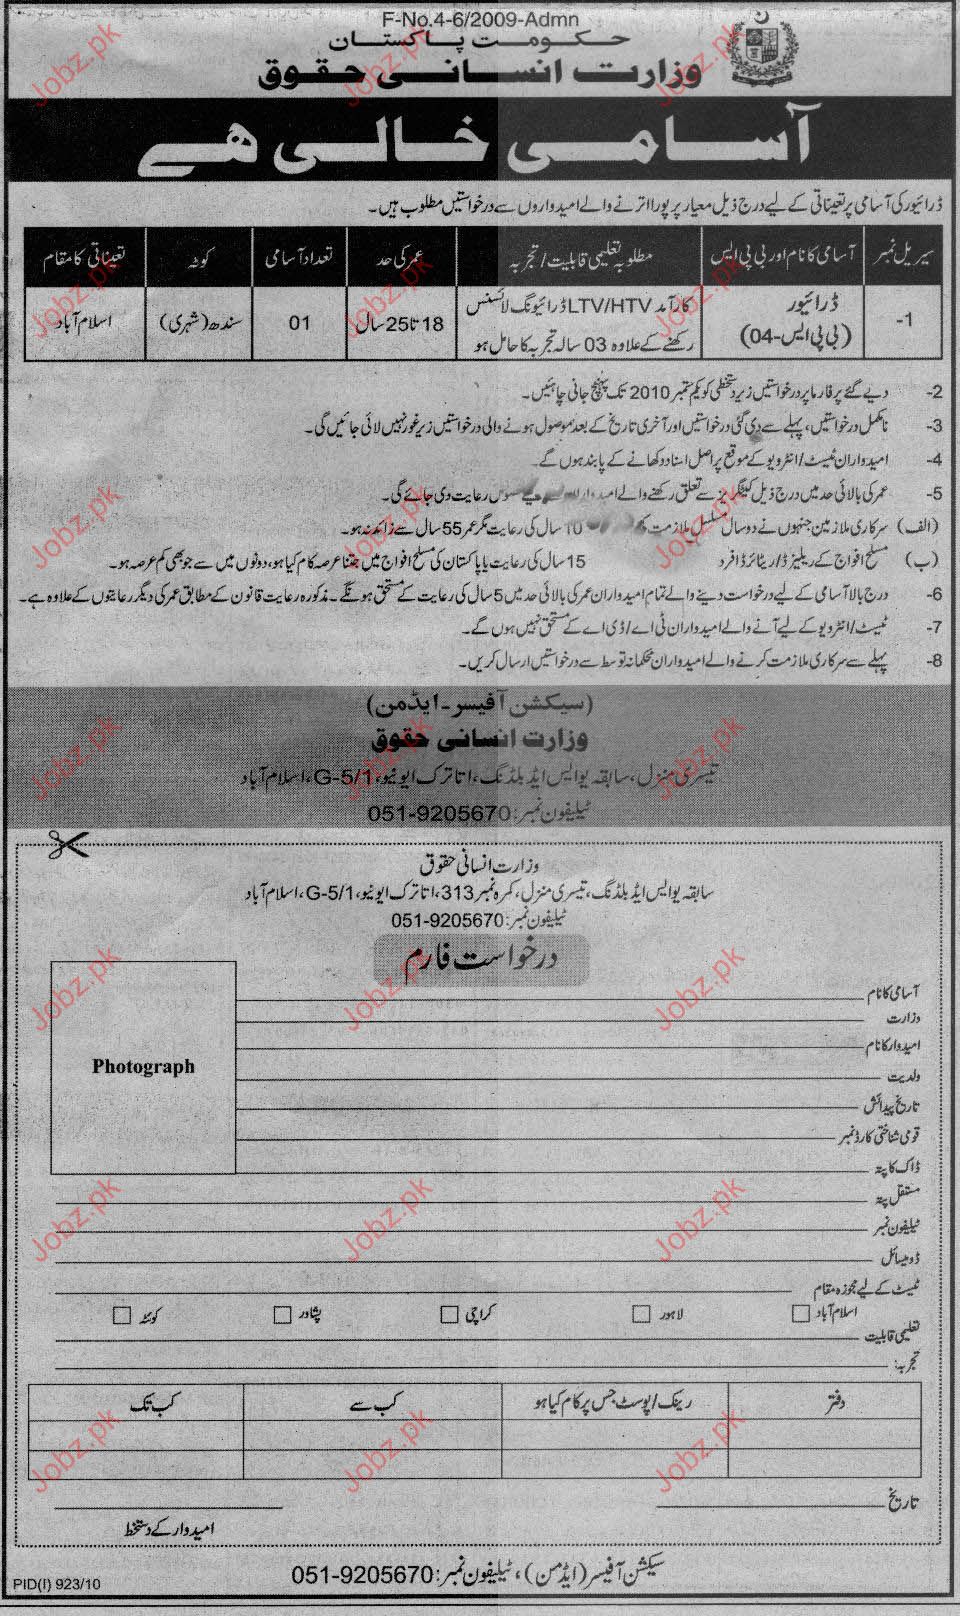 F-No.4-6/2009-Admn
حکومت پاکستان
وزارت انسانی حقوق
آسامی خالی ھے
ڈرائیور کی آسامی پر تعیناتی کے لیے درج ذیل معیار پر پورا اترنے والے امیدواروں سے درخواستیں مطلوب ہیں۔
سیریل نمبر آسامی کا نام اور بی پی ایس مطلوبہ تعلیمی قابلیت/تجربہ عمر کی حد تعداد آسامی کوٹہ تعیناتی کا مقام
1- ڈرائیور (بی پی ایس-04) کارآمد LTV/HTV ڈرائیونگ لائسنس رکھنے کے علاوہ 03 سالہ تجربہ کا حامل ہو 18 تا 25 سال 01 سندھ (شہری) اسلام آباد
2- دیے گئے پرفارما پر درخواستیں زیر دستخطی کو یکم ستمبر 2010 تک پہنچ جانی چاہئیں۔
3- نامکمل درخواستیں، پہلے سے دی گئی درخواستیں اور آخری تاریخ کے بعد موصول ہونے والی درخواستیں زیر غور نہیں لائی جائیں گی۔
4- امیدواران ٹیسٹ/انٹرویو کے موقع پر اصل اسناد دکھانے کے پابند ہوں گے۔
5- عمر کی بالائی حد میں درج ذیل کیٹگریز سے تعلق رکھنے والے رعایت دی جائے گی۔
(الف) سرکاری ملازمین جنہوں نے دو سال مسلسل ملازمت 10 سال کی رعایت مگر عمر 55 سال سے زائد نہ ہو۔
(ب) مسلح افواج کے ریلیزڈ/ریٹائرڈ افرد 15 سال کی رعایت یا پاکستان کی مسلح افواج میں جتنا عرصہ کام کیا ہو، دونوں میں سے جو بھی کم عرصہ ہو۔
6- درج بالا آسامی کے لیے درخواست دینے والے تمام امیدواران عمر کی بالائی حد میں 5 سال کی رعایت کے مستحق ہونگے۔ مذکورہ رعایت قانون کے مطابق عمر کی دیگر رعایتوں کے علاوہ ہے۔
7- ٹیسٹ/انٹرویو کے لیے آنے والے امیدواران ٹی اے/ڈی اے کے مستحق نہیں ہوں گے۔
8- پہلے سے سرکاری ملازمت کرنے والے امیدواران محکمانہ توسط سے درخواستیں ارسال کریں۔
(سیکشن آفیسر۔ایڈمن)
وزارت انسانی حقوق
تیسری منزل، سابقہ یو ایس ایڈ بلڈنگ، اتا ترک ایونیو، G-5/1، اسلام آباد
ٹیلیفون نمبر: 051-9205670
وزارت انسانی حقوق
سابقہ یو ایس ایڈ بلڈنگ، تیسری منزل، کمرہ نمبر 313، اتا ترک ایونیو، G-5/1، اسلام آباد
ٹیلیفون نمبر: 051-9205670
درخواست فارم
Photograph
آسامی کا نام
وزارت
امیدوار کا نام
ولدیت
تاریخ پیدائش
قومی شناختی کارڈ نمبر
ڈاک کا پتہ
مستقل پتہ
ٹیلیفون نمبر
ڈومیسائل
ٹیسٹ کے لیے مجوزہ مقام
اسلام آباد لاہور کراچی پشاور کوئٹہ
تعلیمی قابلیت
تجربہ:
دفتر رینک/پوسٹ جس پر کام کیا ہو کب سے کب تک
تاریخ
امیدوار کے دستخط
سیکشن آفیسر (ایڈمن)، ٹیلیفون نمبر: 051-9205670
PID(I) 923/10
Jobz.pk